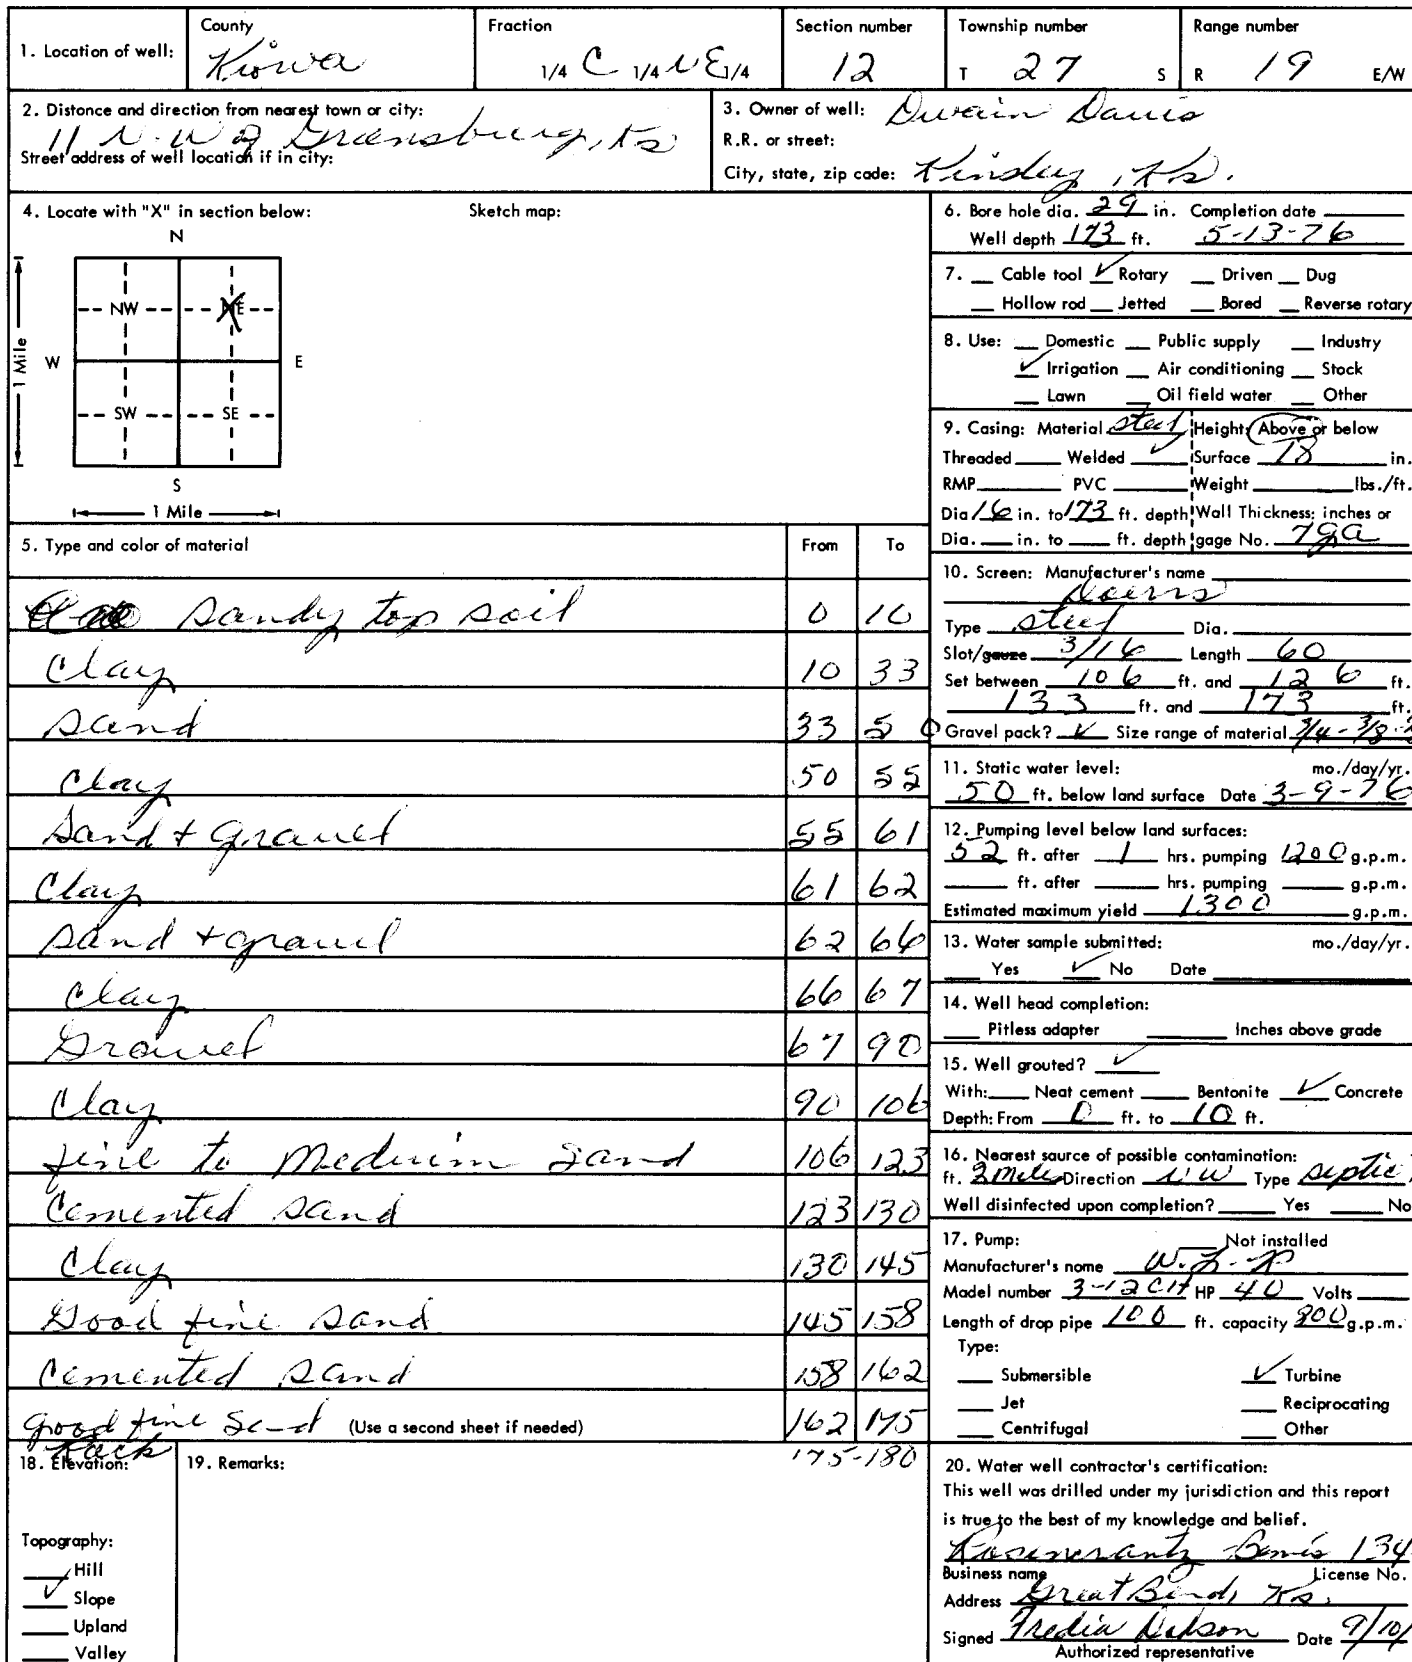 County Fraction Section number Township number Range number
1. Location of well: Kiowa 1/4 C 1/4 NE 1/4 12 T 27 S R 19 E/W
2. Distonce and direction from nearest town or city: 3. Owner of well: Dwain Davis
11 N.W of Greensburg, Ks R.R. or street:
Street address of well location if in city: City, state, zip code: Kinsley, Ks.
4. Locate with "X" in section below: Sketch map:
N
NW NE
W E
SW SE
S
1 Mile
1 Mile
5. Type and color of material From To
sandy top soil 0 10
Clay 10 33
Sand 33 50
Clay 50 55
Sand + Gravel 55 61
Clay 61 62
Sand + gravel 62 66
Clay 66 67
Gravel 67 90
Clay 90 106
fine to Medium Sand 106 123
Cemented sand 123 130
Clay 130 145
Good fine sand 145 158
Cemented sand 158 162
good fine sand (Use a second sheet if needed) 162 175
Rock 175-180
6. Bore hole dia. 29 in. Completion date
Well depth 173 ft. 5-13-76
7. Cable tool ✓ Rotary Driven Dug
Hollow rod Jetted Bored Reverse rotary
8. Use: Domestic Public supply Industry
✓ Irrigation Air conditioning Stock
Lawn Oil field water Other
9. Casing: Material steel Height: Above or below
Threaded Welded ✓ Surface 18 in.
RMP PVC Weight lbs./ft.
Dia 16 in. to 173 ft. depth Wall Thickness: inches or
Dia. in. to ft. depth gage No. 7ga
10. Screen: Manufacturer's name
Type steel Dia.
Slot/gauze 3/16 Length 60
Set between 106 ft. and 126 ft.
133 ft. and 173 ft.
Gravel pack? ✓ Size range of material 3/4-3/8-
11. Static water level: mo./day/yr.
50 ft. below land surface Date 3-9-76
12. Pumping level below land surfaces:
52 ft. after 1 hrs. pumping 1200 g.p.m.
ft. after hrs. pumping g.p.m.
Estimated maximum yield 1300 g.p.m.
13. Water sample submitted: mo./day/yr.
Yes ✓ No Date
14. Well head completion:
Pitless adapter Inches above grade
15. Well grouted? ✓
With: Neat cement Bentonite ✓ Concrete
Depth: From 0 ft. to 10 ft.
16. Nearest source of possible contamination:
ft. 2 mile Direction NW Type septic
Well disinfected upon completion? Yes No
17. Pump: Not installed
Manufacturer's name
Model number 3-12CH HP 40 Volts
Length of drop pipe 100 ft. capacity 800 g.p.m.
Type:
Submersible ✓ Turbine
Jet Reciprocating
Centrifugal Other
18. Elevation: 19. Remarks:
Topography:
Hill
✓ Slope
Upland
Valley
20. Water well contractor's certification:
This well was drilled under my jurisdiction and this report
is true to the best of my knowledge and belief.
Rosencrantz Bemis 134
Business name License No.
Address Great Bend, Ks.
Signed Fredia Date 9/10/
Authorized representative